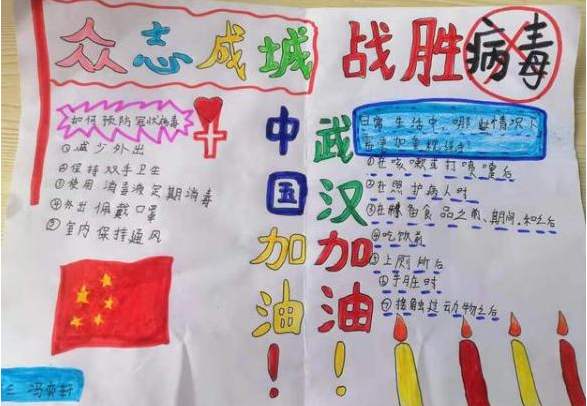 众志成城 战胜病毒
如何预防冠状病毒
①减少外出
②保持双手卫生
③使用消毒液定期消毒
④外出佩戴口罩
⑤室内保持通风
中国加油!
武汉加油!
日常生活中,哪些情况下
①在咳嗽或打喷嚏后
②在照护病人时
③在准备食品之前、期间和之后
④吃饭前
⑤上厕所后
⑥手脏时
⑦接触过动物之后
三 冯